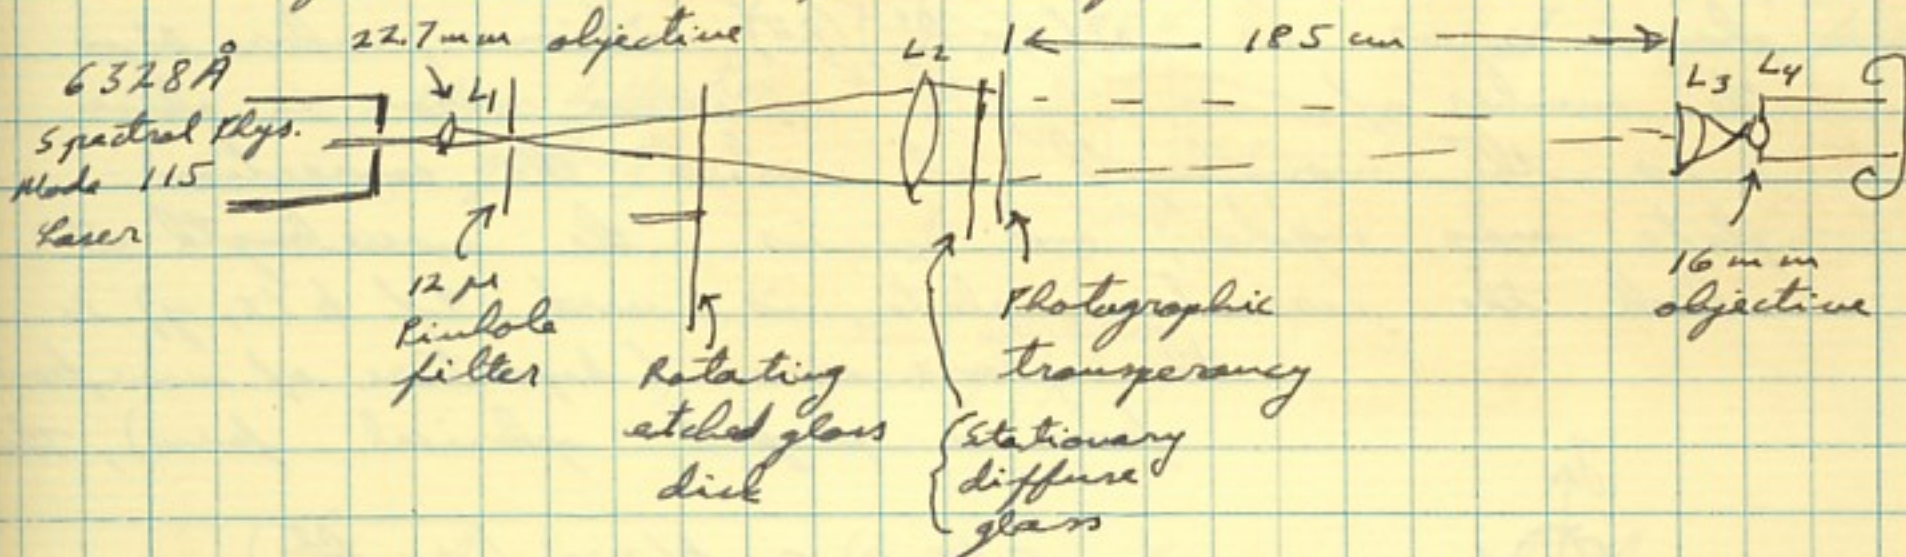 22.7 mm objective
6328Å
Spectral Phys.
Mode 115
Laser
L1
L2
185 cm
L3 L4
12 μ
Pinhole
filter
Rotating
etched glass
disk
Stationary
diffuse
glass
Photographic
transperancy
16 mm
objective